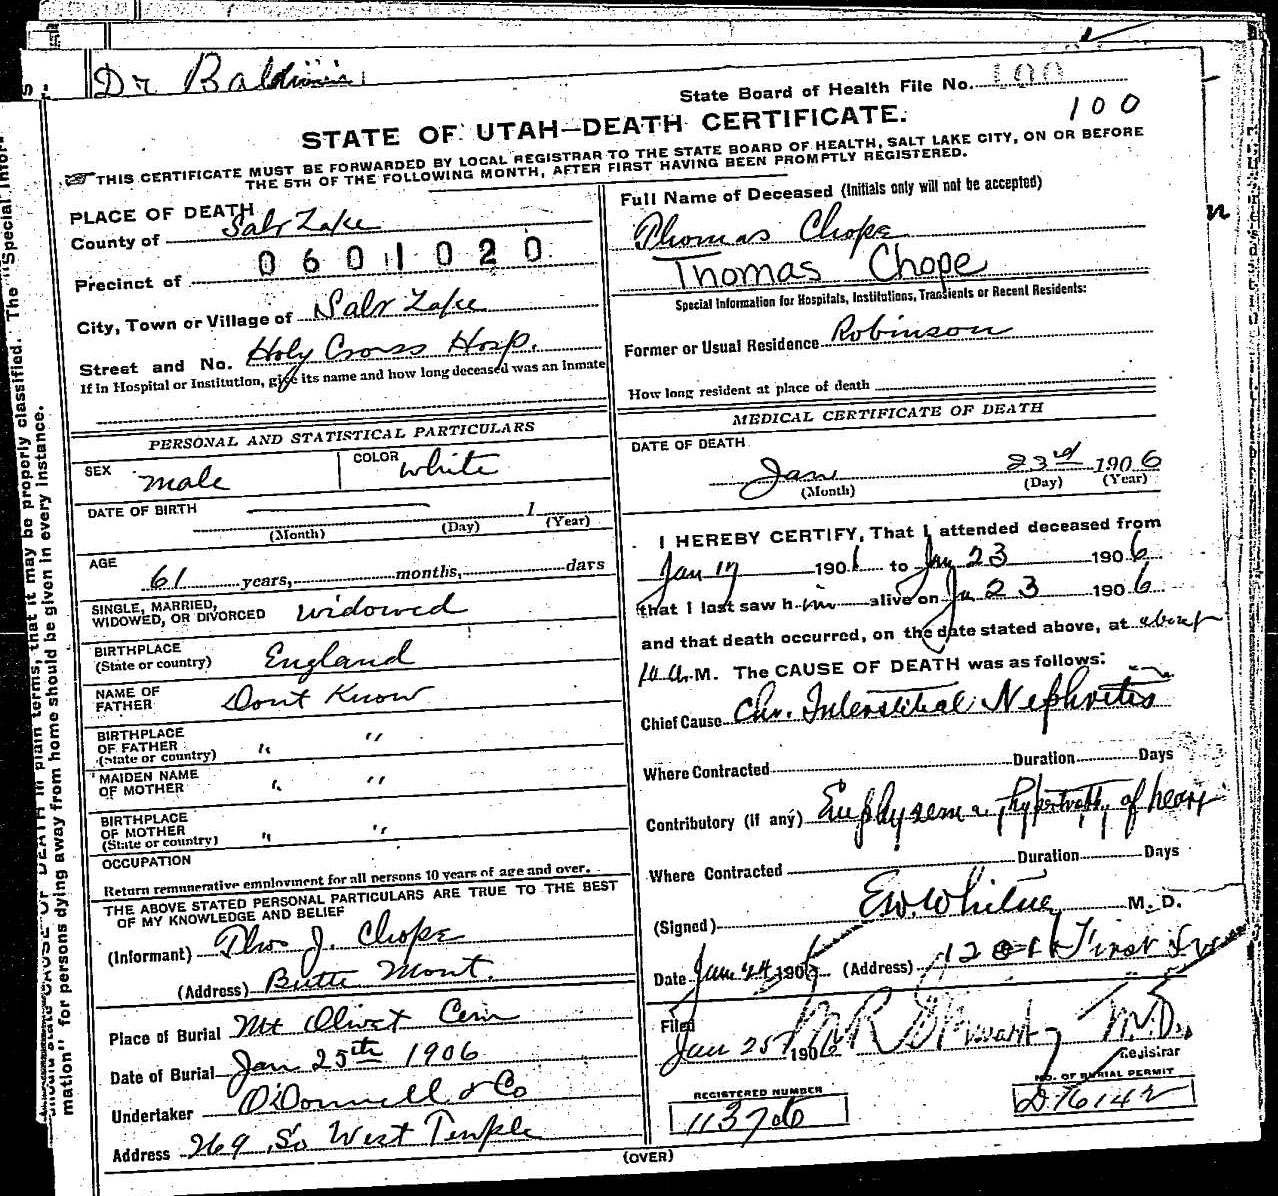 Dr Baldwin
State Board of Health File No. 100
100
STATE OF UTAH—DEATH CERTIFICATE.
THIS CERTIFICATE MUST BE FORWARDED BY LOCAL REGISTRAR TO THE STATE BOARD OF HEALTH, SALT LAKE CITY, ON OR BEFORE
THE 5TH OF THE FOLLOWING MONTH, AFTER FIRST HAVING BEEN PROMPTLY REGISTERED.
PLACE OF DEATH
County of Salt Lake
Precinct of 0601020
City, Town or Village of Salt Lake
Street and No. Holy Cross Hosp.
If in Hospital or Institution, give its name and how long deceased was an Inmate
PERSONAL AND STATISTICAL PARTICULARS
SEX male COLOR white
DATE OF BIRTH 1
(Month) (Day) (Year)
AGE 61 years, months, days
SINGLE, MARRIED,
WIDOWED, OR DIVORCED widowed
BIRTHPLACE
(State or country) England
NAME OF
FATHER Dont Know
BIRTHPLACE
OF FATHER
(State or country) " "
MAIDEN NAME
OF MOTHER " "
BIRTHPLACE
OF MOTHER
(State or country) " "
OCCUPATION
Return remunerative employment for all persons 10 years of age and over.
THE ABOVE STATED PERSONAL PARTICULARS ARE TRUE TO THE BEST
OF MY KNOWLEDGE AND BELIEF
(Informant) Thos J. Chope
(Address) Butte Mont.
Place of Burial Mt Olivet Cem
Date of Burial Jan 25th 1906
Undertaker O'Donnell & Co
Address 269 So West Temple
Full Name of Deceased (Initials only will not be accepted)
Thomas Chope
Thomas Chope
Special Information for Hospitals, Institutions, Transients or Recent Residents:
Former or Usual Residence Robinson
How long resident at place of death
MEDICAL CERTIFICATE OF DEATH
DATE OF DEATH
Jan 23rd 1906
(Month) (Day) (Year)
I HEREBY CERTIFY, That I attended deceased from
Jan 17 1906 to Jan 23 1906
that I last saw him alive on Ja 23 1906
and that death occurred, on the date stated above, at about
10 A.M. The CAUSE OF DEATH was as follows:
Chief Cause Chr. Interstitial Nephritis
Where Contracted Duration Days
Contributory (if any) Emphysema, hypertrophy of heart
Where Contracted Duration Days
(Signed) E.W. Whitney M. D.
Date Jan 24 1906 (Address) First
Filed
Jan 25 1906 M R Stewart M.D.
Registrar
REGISTERED NUMBER
NO. OF BURIAL PERMIT
113706
D76142
(OVER)
mation" for persons dying away from home should be given in every instance.
DEATH in plain terms, that it may be properly classified. The "Special Infor-